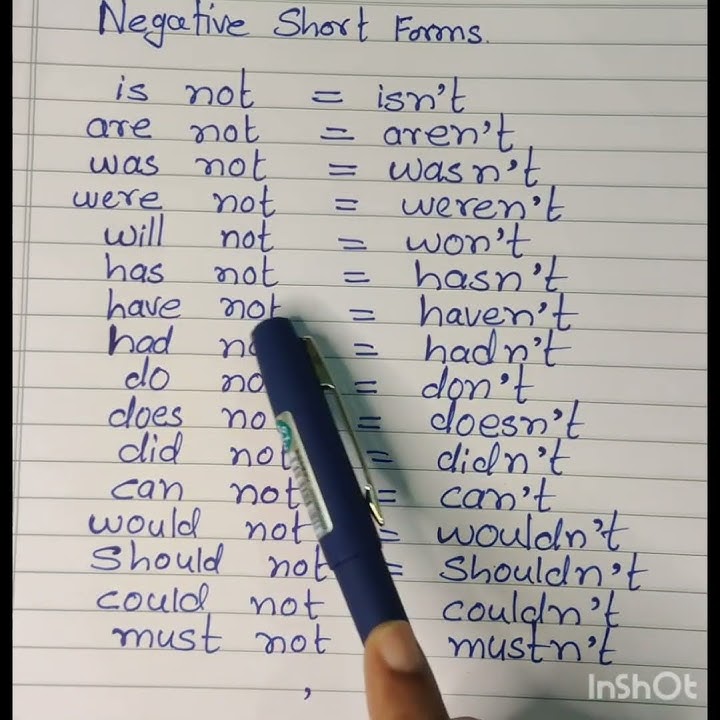 Negative Short Forms.
is not = isn't
are not = aren't
was not = wasn't
were not = weren't
will not = won't
has not = hasn't
have not = haven't
had no = hadn't
do no = don't
does no = doesn't
did not = didn't
can not = can't
would not = wouldn't
Should not = Shouldn't
could not couldn't
must not mustn't
,
InShOt